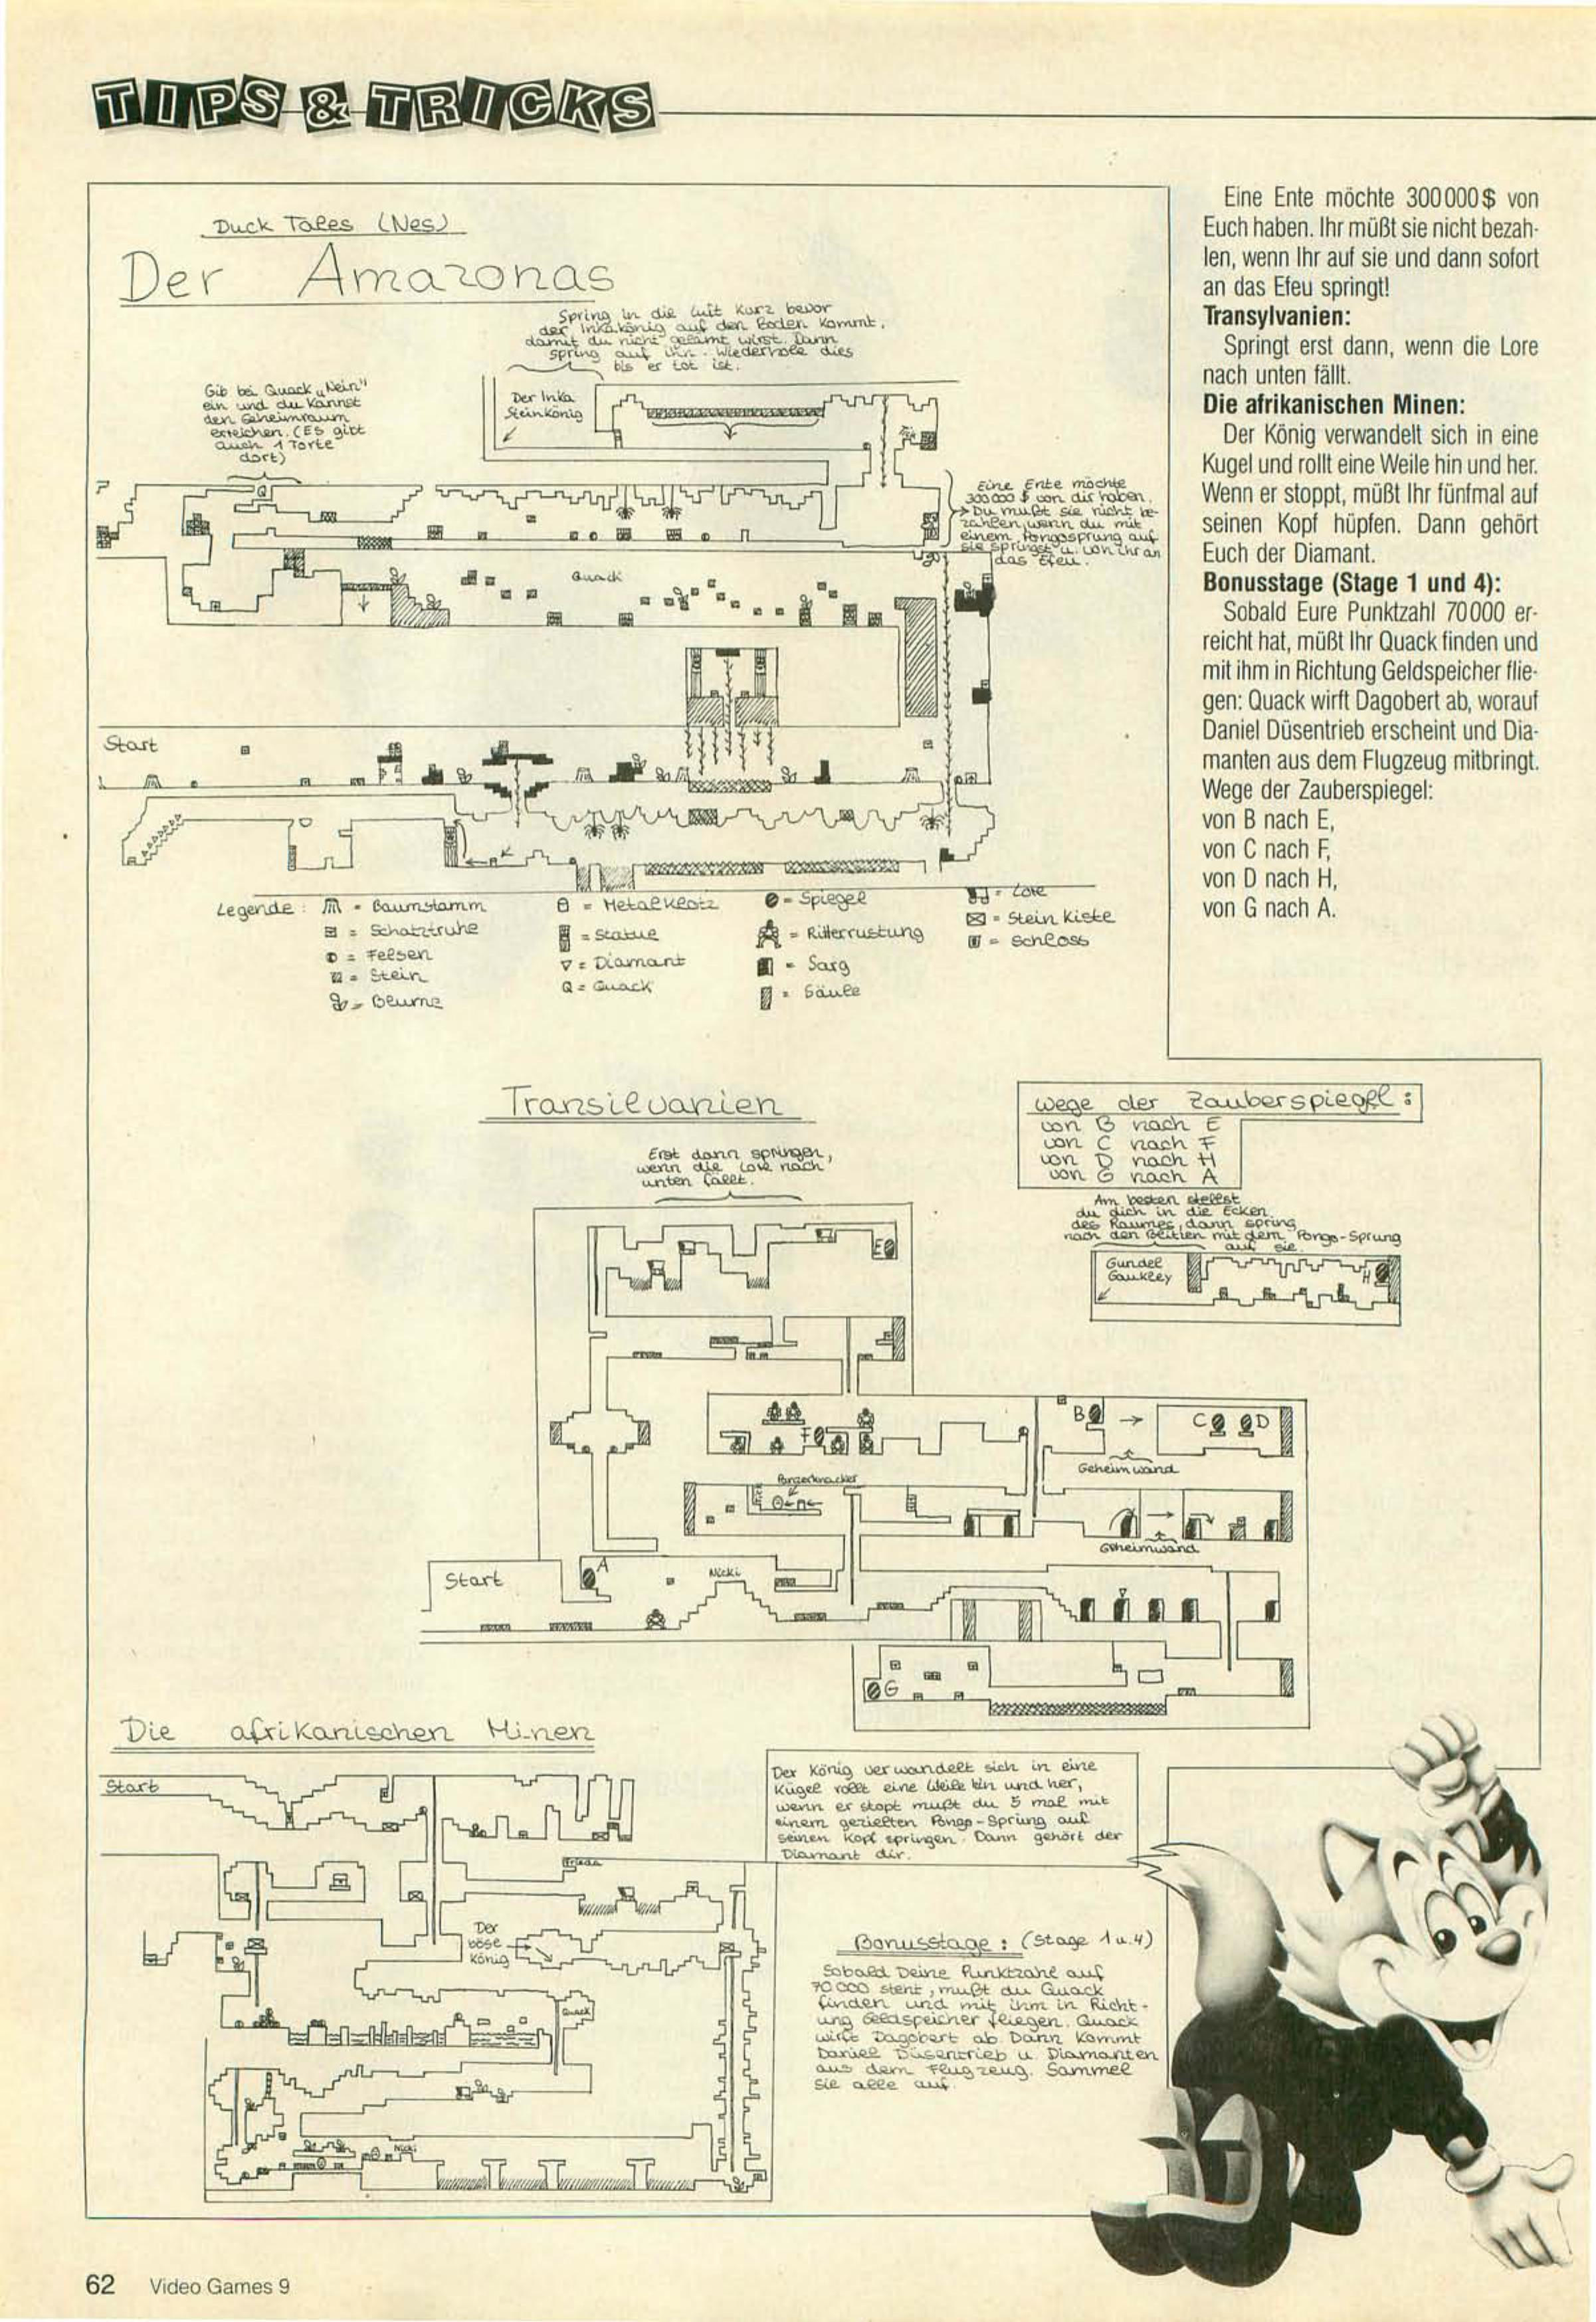 TIPS & TRICKS
Duck Tales (Nes)
Der Amazonas
Spring in die Luft kurz bevor
der Inkakönig auf den Boden kommt,
damit du nicht gelämt wirst. Dann
spring auf ihn. Wiederhole dies
bis er tot ist.
Gib bei Quack „Nein"
ein und du kannst
den Geheimraum
erreichen. (Es gibt
auch 1 Torte
dort)
Der Inka
Steinkönig
Q
Eine Ente möchte
300000 $ von dir haben.
Du mußt sie nicht be-
zahlen, wenn du mit
einem Pongosprung auf
sie springst u. von ihr an
das Efeu.
Quack
Start
Legende:
= Baumstamm
= Schatztruhe
= Felsen
= Stein
= Blume
= Metalklotz
= Statue
= Diamant
Q = Quack
= Spiegel
= Ritterrustung
= Sarg
= Säule
= Lore
= Stein Kiste
= Schloss
Eine Ente möchte 300000$ von
Euch haben. Ihr müßt sie nicht bezah-
len, wenn Ihr auf sie und dann sofort
an das Efeu springt!
Transylvanien:
Springt erst dann, wenn die Lore
nach unten fällt.
Die afrikanischen Minen:
Der König verwandelt sich in eine
Kugel und rollt eine Weile hin und her.
Wenn er stoppt, müßt Ihr fünfmal auf
seinen Kopf hüpfen. Dann gehört
Euch der Diamant.
Bonusstage (Stage 1 und 4):
Sobald Eure Punktzahl 70000 er-
reicht hat, müßt Ihr Quack finden und
mit ihm in Richtung Geldspeicher flie-
gen: Quack wirft Dagobert ab, worauf
Daniel Düsentrieb erscheint und Dia-
manten aus dem Flugzeug mitbringt.
Wege der Zauberspiegel:
von B nach E,
von C nach F,
von D nach H,
von G nach A.
Transilvanien
Erst dann springen,
wenn die Lore nach
unten fällt.
Wege der Zauberspiegel:
von B nach E
von C nach F
von D nach H
von G nach A
Am besten stellst
du dich in die Ecken
des Raumes, dann spring
nach den Blitzen mit dem Pongo-Sprung
auf sie.
Gundel
Gaukley
H
E
B
C
D
F
Geheimwand
Panzerknacker
Geheimwand
Start
A
Nicki
G
Die afrikanischen Minen
Start
Der König verwandelt sich in eine
Kügel rollt eine Weile hin und her,
wenn er stopt mußt du 5 mal mit
einem gezielten Pongo-Sprung auf
seinen Kopf springen. Dann gehört der
Diamant dir.
Frieda
Der
böse
König
Quack
Nicki
Bonusstage: (Stage 1 u. 4)
Sobald Deine Punktzahl auf
70000 steht, mußt du Quack
finden und mit ihm in Richt-
ung Geldspeicher fliegen. Quack
wirft Dagobert ab. Dann kommt
Daniel Düsentrieb u. Diamanten
aus dem Flugzeug. Sammel
sie alle auf.
62 Video Games 9